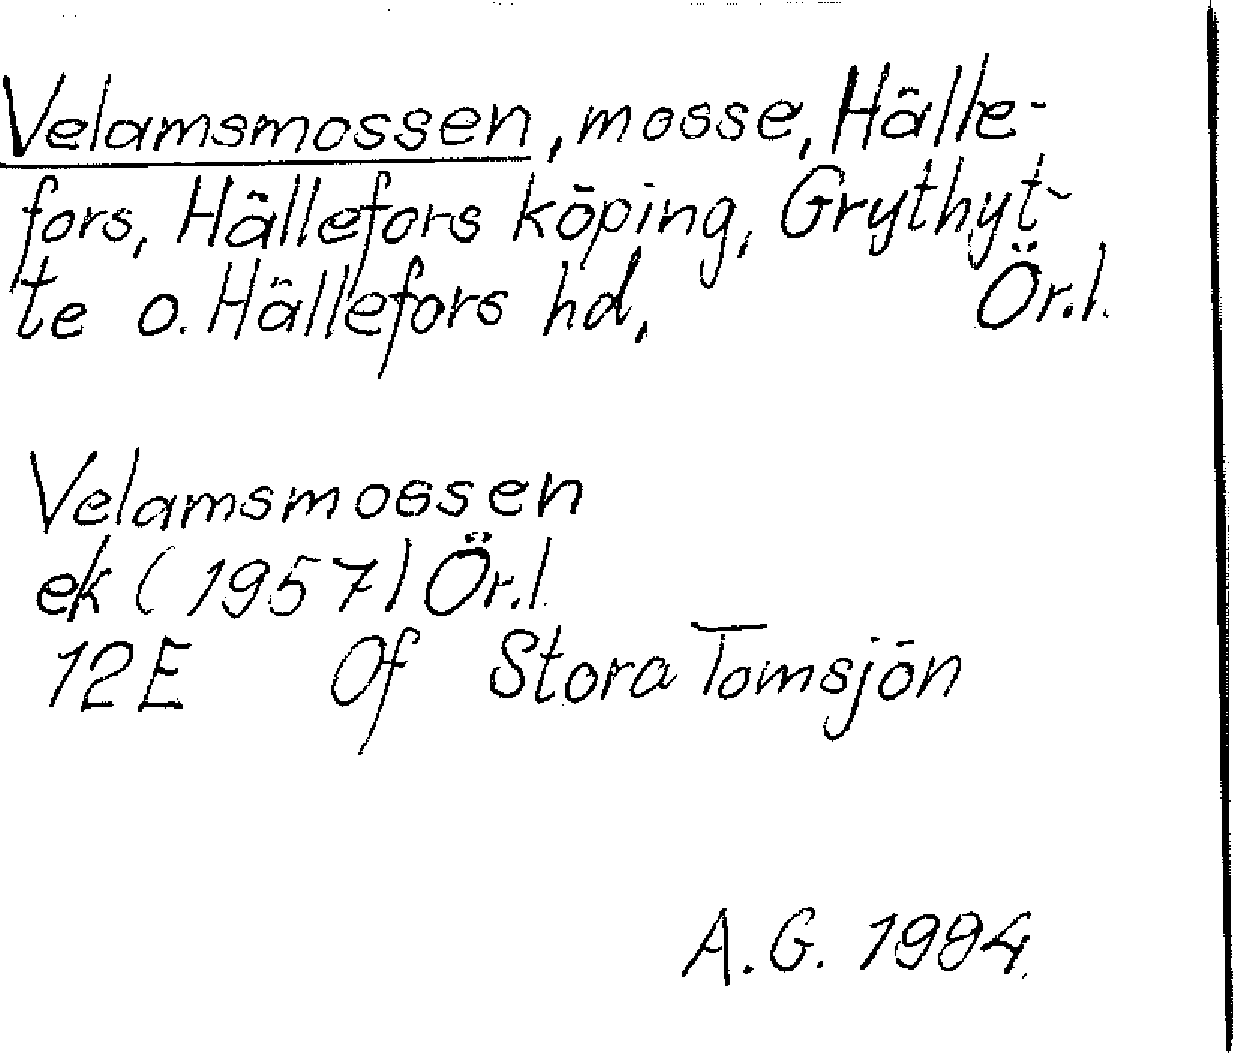 Velamsmossen, mosse, Hälle-
fors, Hällefors köping, Grythyt-
te o. Hällefors hd, Ör.l.
Velamsmossen
ek (1957) Ör.l.
12E 0f Stora Tomsjön
A.G. 1984